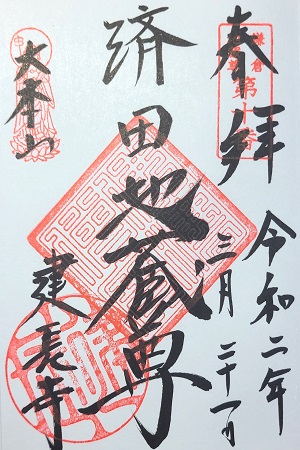 奉拝
令和二年
三月二十一日
済田地蔵尊
大本山
建長寺